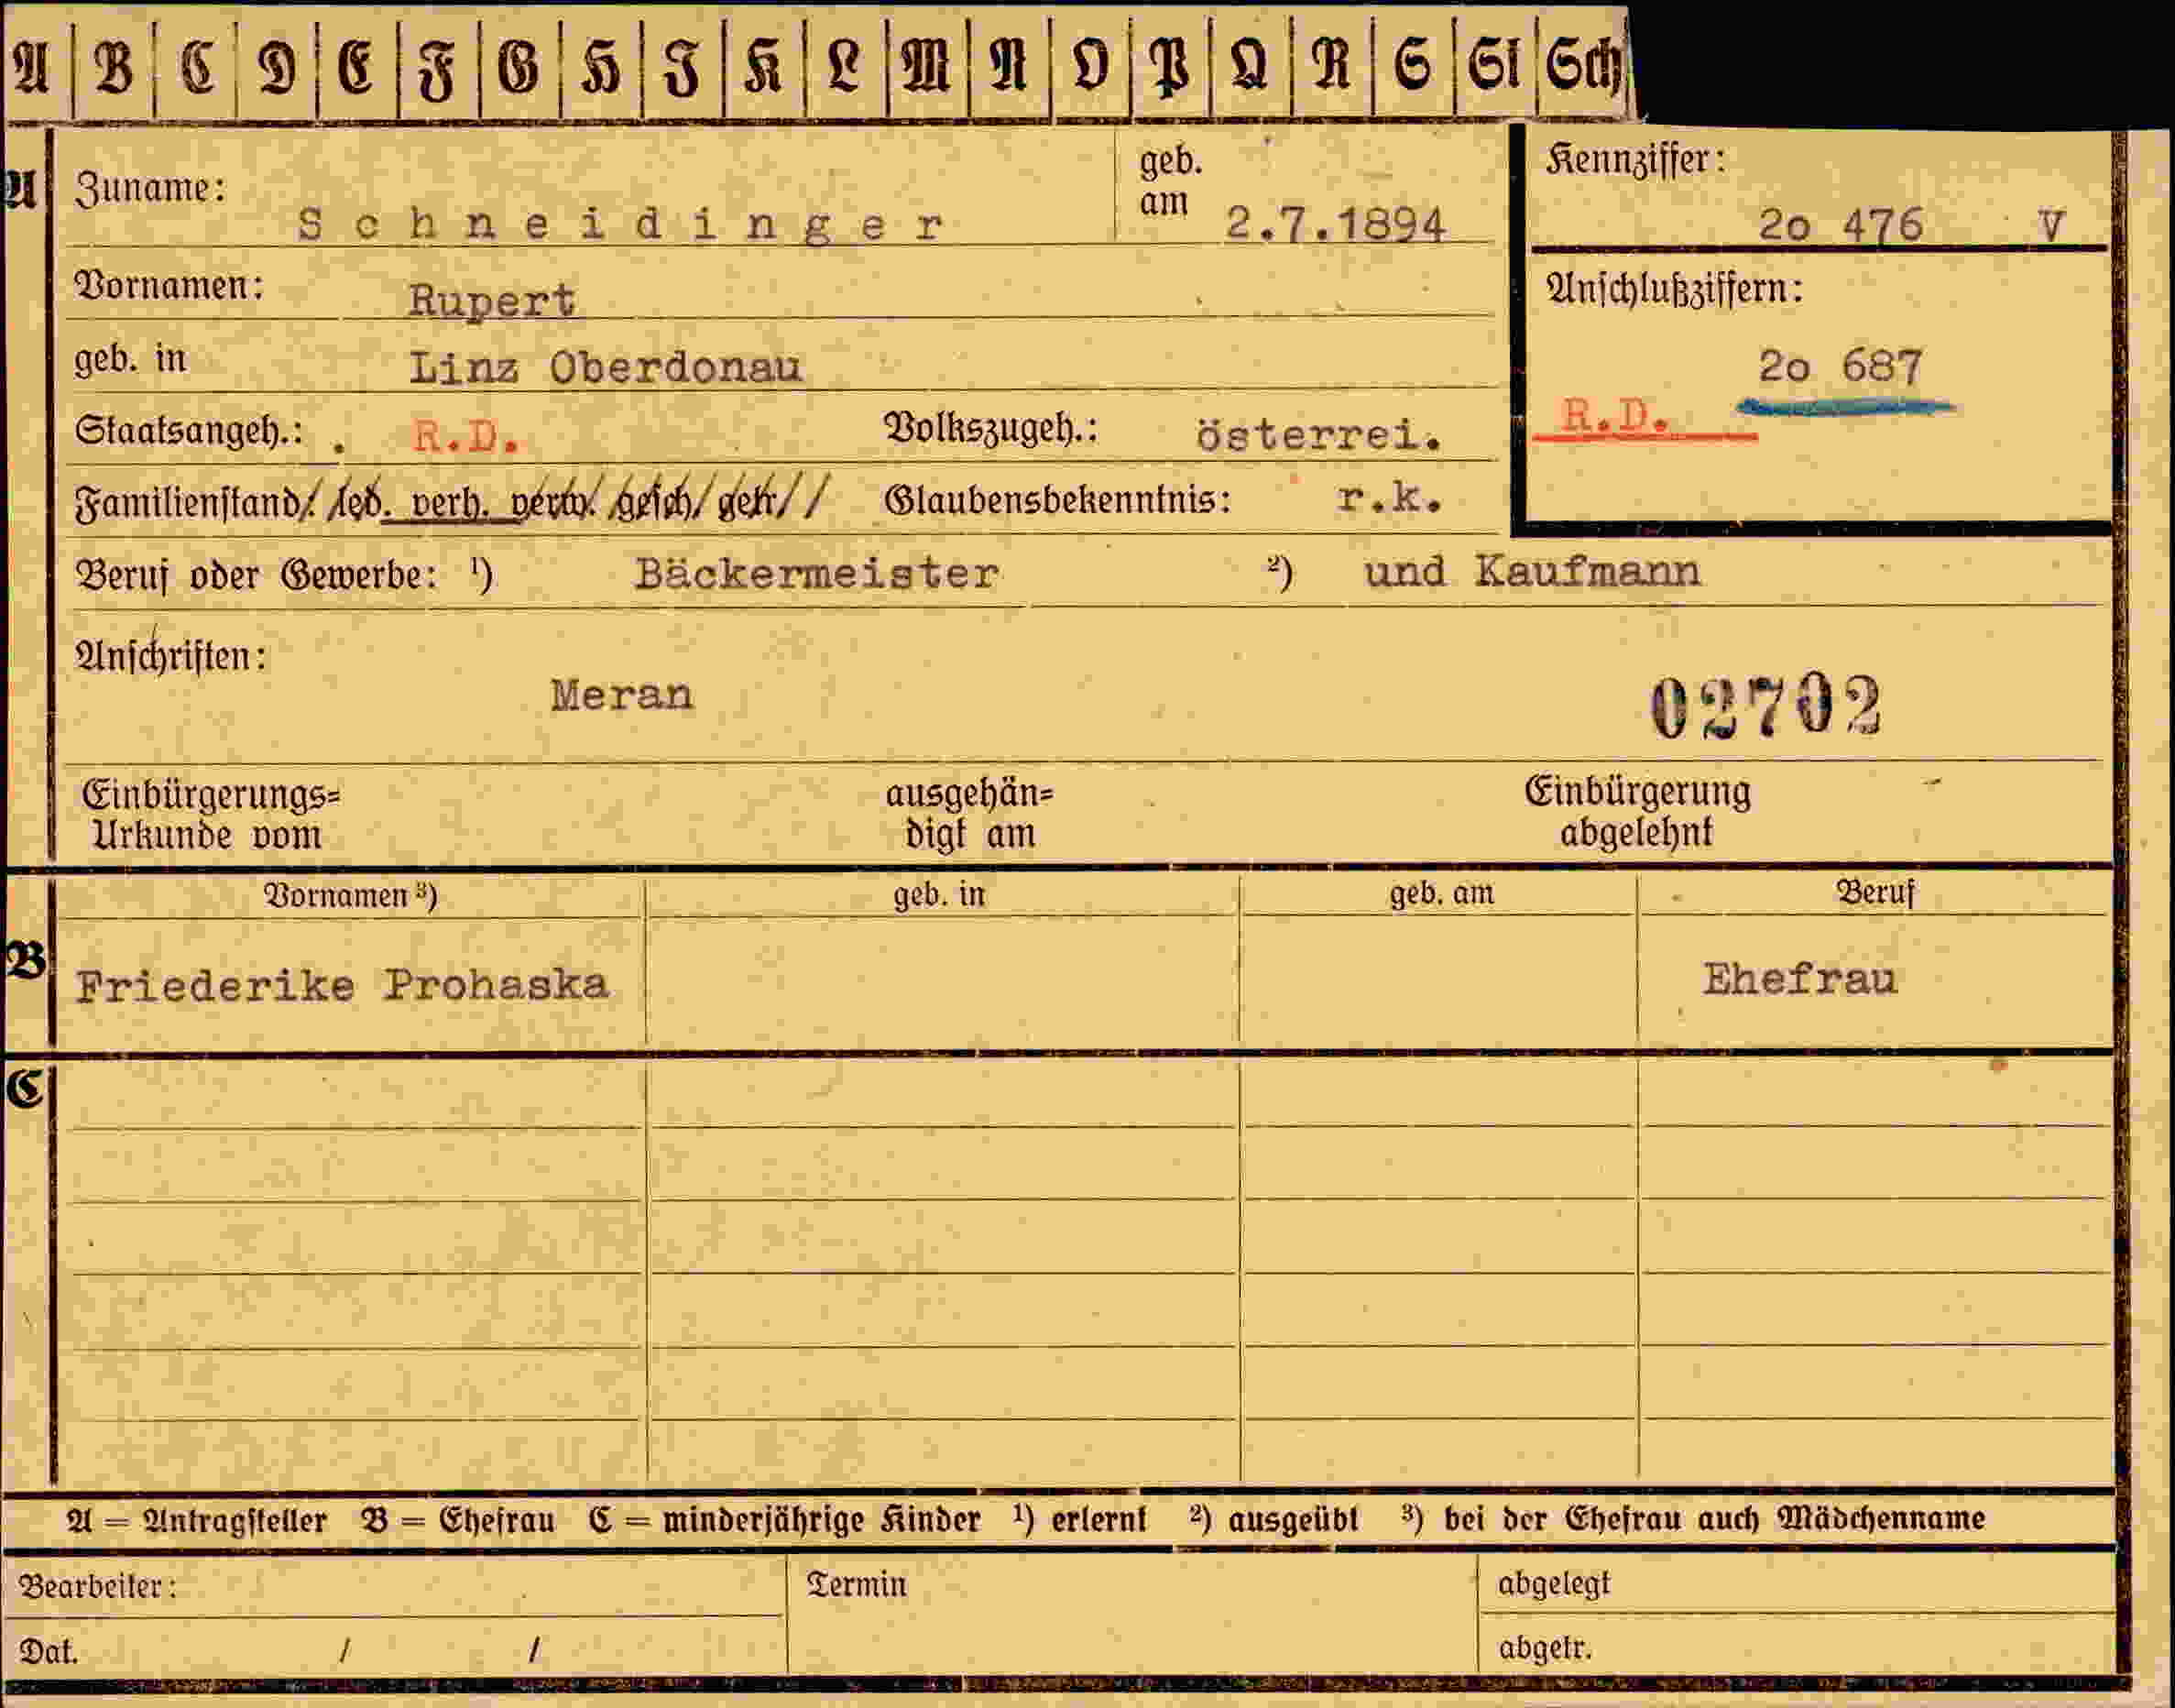 A B C D E F G H I K L M N O P Q R S St Sch
A Zuname: Schneidinger geb. am 2.7.1894 Kennziffer: 2o 476 V
Vornamen: Rupert Anschlußziffern:
geb. in Linz Oberdonau 2o 687
Staatsangeh.: . R.D. Volkszugeh.: österrei. R.D.
Familienstand: led. verh. verw. gesch. getr. Glaubensbekenntnis: r.k.
Beruf oder Gewerbe: ¹) Bäckermeister ²) und Kaufmann
Anschriften:
Meran 02702
Einbürgerungs= ausgehän= Einbürgerung
Urkunde vom digt am abgelehnt
Vornamen ³) geb. in geb. am Beruf
B Friederike Prohaska Ehefrau
C
A = Antragsteller B = Ehefrau C = minderjährige Kinder ¹) erlernt ²) ausgeübt ³) bei der Ehefrau auch Mädchenname
Bearbeiter: Termin abgelegt
Dat. / / abgetr.